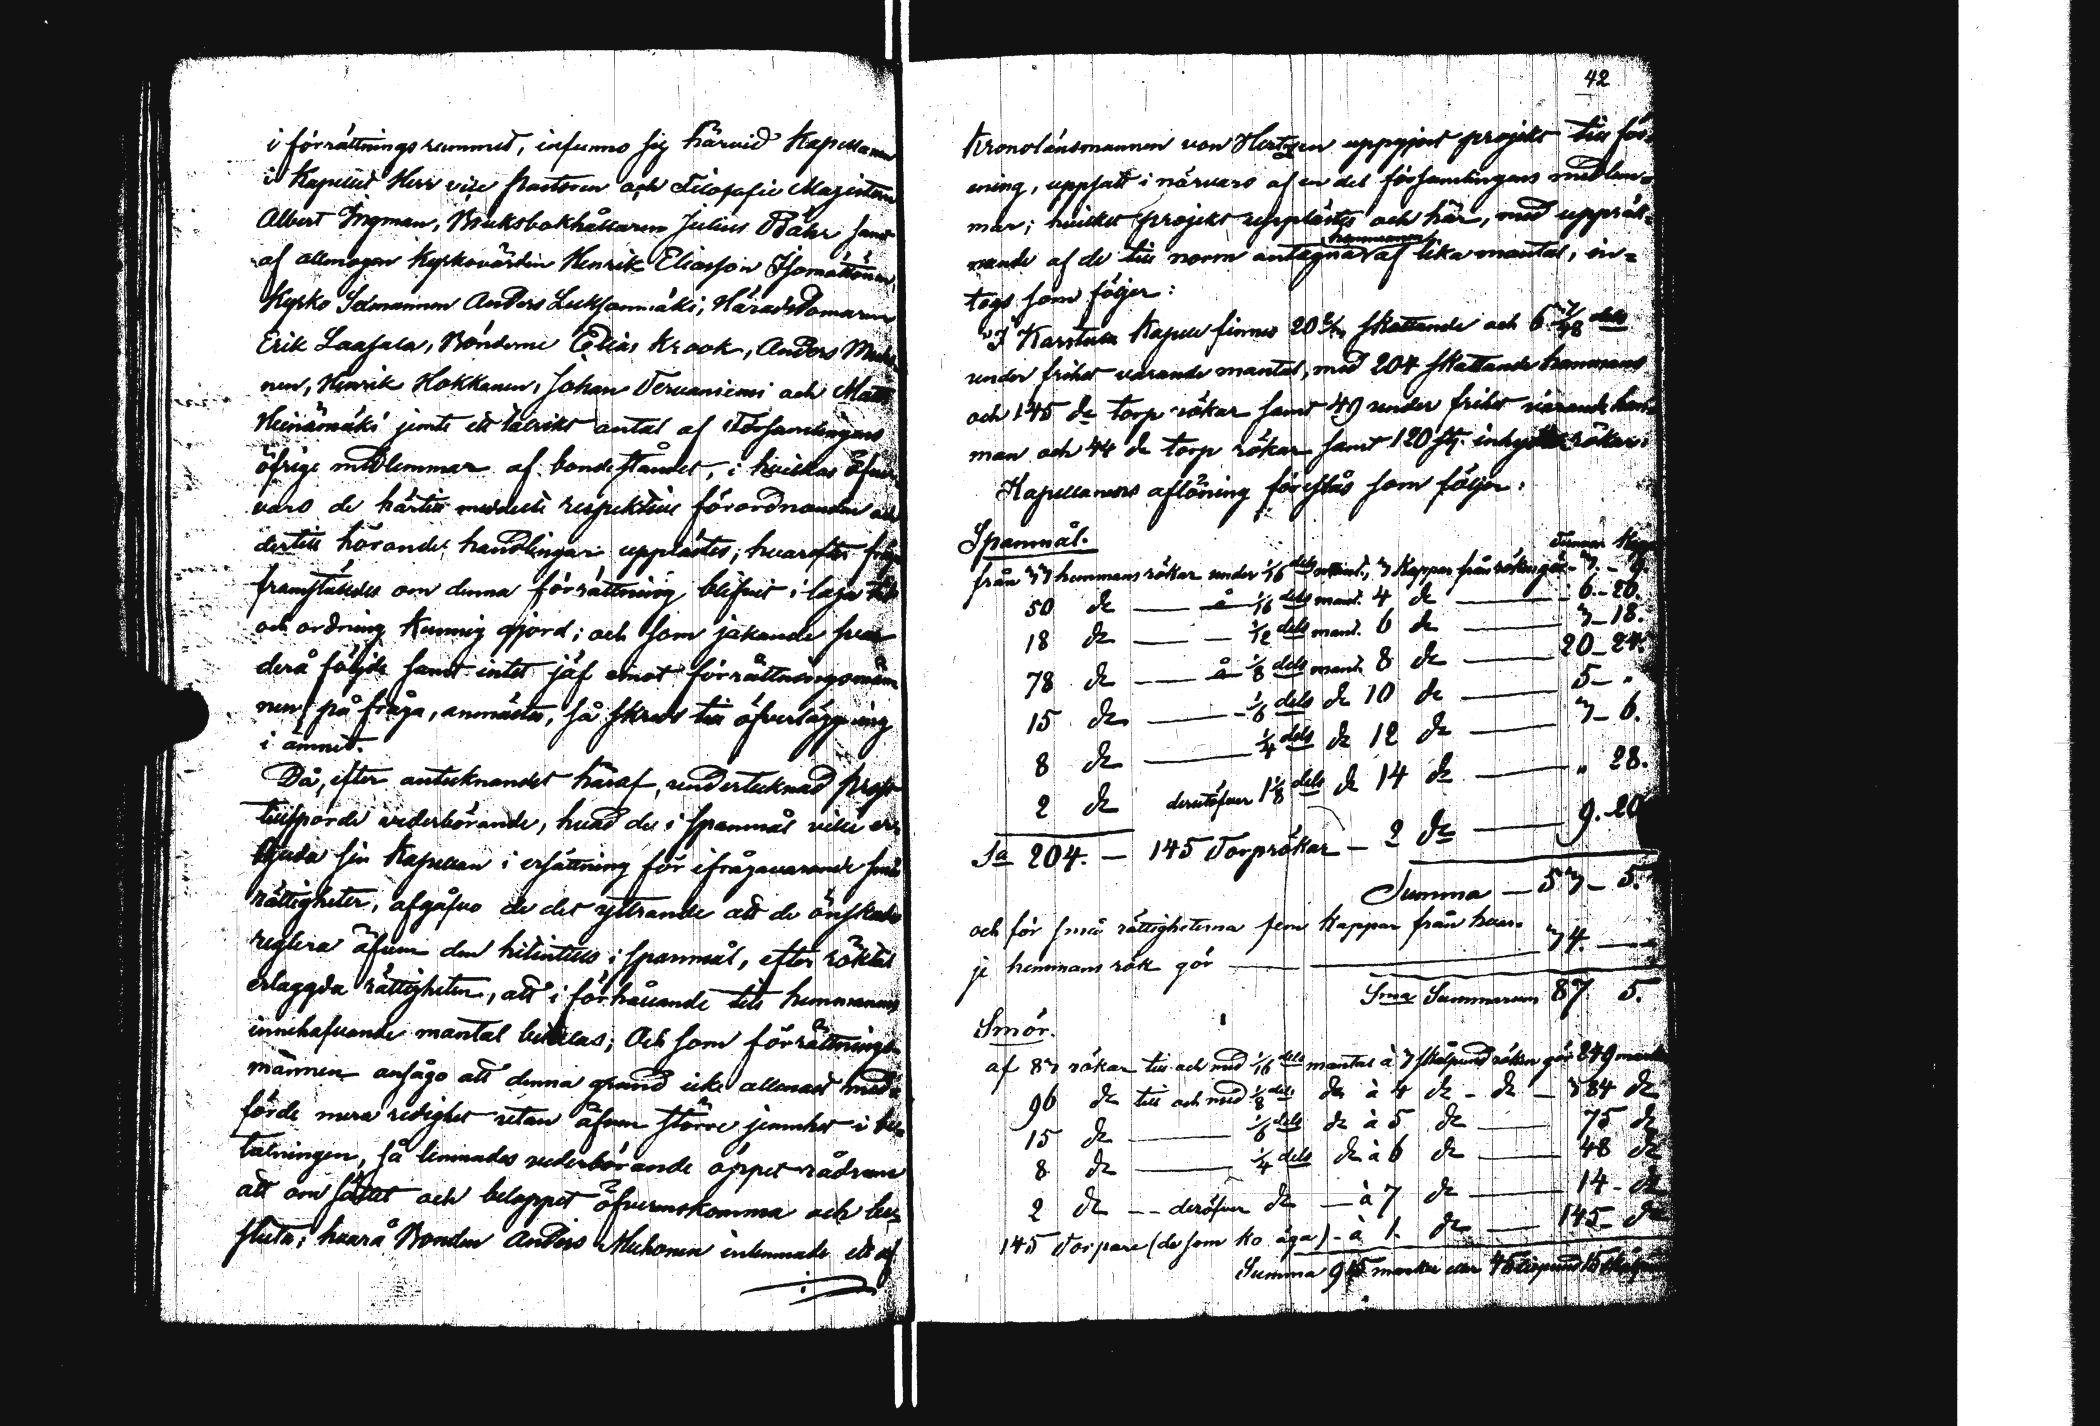 i förrättningsrummet, infunno sig härvid Kapellanen
i Kapellet Herr vice Pastoren och Filosofie Magistern
Albert Ingman, Bruksbokhållaren Julius Bähr samt
af allmogen Kyrkovärden Henrik Eliasson Isomöttönen,
Kyrko Sexmannen Anders Leuksonmäki, Häradsdomaren
Erik Laasala, Bönderne Elias Krook, Anders Muho-
nen, Henrik Hokkanen, Johan Tervaniemi och Matts
Heinämäki jemte ett talrikt antal af Församlingens
öfrige medlemmar af bondeståndet, i hvilkas öfver-
varo de härtill meddelte respektive förordnanden och
dertill hörande handlingar upplästes; hvarefter fråga
framställdes om denna förrättning blifvit i laga tid
och ordning kunnig gjord; och som jakande svar
derå följde samt intet jäf emot förrättningsmän-
nen på fråga, anmältes, så skreds till öfverläggning
i ämnet.
Då, efter antecknandet häraf, undertecknad Prost
tillsporde vederbörande, hvad de i spanmål ville er-
bjuda sin Kapellan i ersättning för ifrågavarande små
rättigheter, afgåfvo de det yttrande att de önskade
reglera äfven den hitintills i spanmål, efter röktal
erlaggda rättigheten, att i förhållande till hemmanens
innehafvande mantal betalas; Och som förrättnings-
männen ansågo att denna grund icke allenast med-
förde mera redighet utan äfven större jemnhet i be-
talningen, så lemnades vederbörande öppet rådrum
att om sättet och beloppet öfverenskomma och be-
sluta; hvarå Bonden Anders Muhonen inlemnade ett af
42
Kronolänsmannen von Hertzen uppgjort projekt till för-
ening, uppsatt i närvaro af en del församlingens medlem-
mar; hvilket projekt upplästes och här, med upprät-
hemmanen
nande af de till norm antagna af lika mantal, in-
togs som följer:
"I Karstula Kapell finnes 20 skattande och 6 7/48 dels
under frihet varande mantal, med 204 skattande hemmans
och 145 do torp rökar samt 49 under frihet varande hem-
man och 44 do torp rökar samt 120 st. inhyses rökar.
Kapellanens aflöning föreslås som följer:
Spanmål. Tunnor Kappar
från 33 hemmans rökar under 1/16 dels mant., 3 Kappar från röken gör - 3. - 9.
50 do — å 1/16 dels mant. 4 do — 6. - 20.
18 do — 1/12 dels mant. 6 do — 3 - 18.
78 do — å 1/8 dels mant. 8 do — 20 - 24.
15 do — 1/6 dels do 10 do — 5 - "
8 do — 1/4 dels do 12 do — 3 - 6.
2 do derutöfver 1/8 dels do 14 do — " 28.
Sa 204. — 145 Torprökar — 2 do — 9. - 20
Summa — 53 - 5.
och för små rättigheterna fem kappar från hvar-
je hemmans rök gör — 34. —
Sma Summarum 87. 5.
Smör.
af 83 rökar till och med 1/16 dels mantal à 3 skålpund röken gör 249 marker
96 do till och med 1/8 dels do à 4 do - do - 384 do
15 do — 1/6 dels do à 5 do — 75 do
8 do — 1/4 dels do à 6 do — 48 do
2 do -- deröfver do — à 7 do — 14 - do
145 Torpare (de som ko äga) - à 1. do — 145 - do
Summa 915 marker eller 45 lispund 15 skålpund